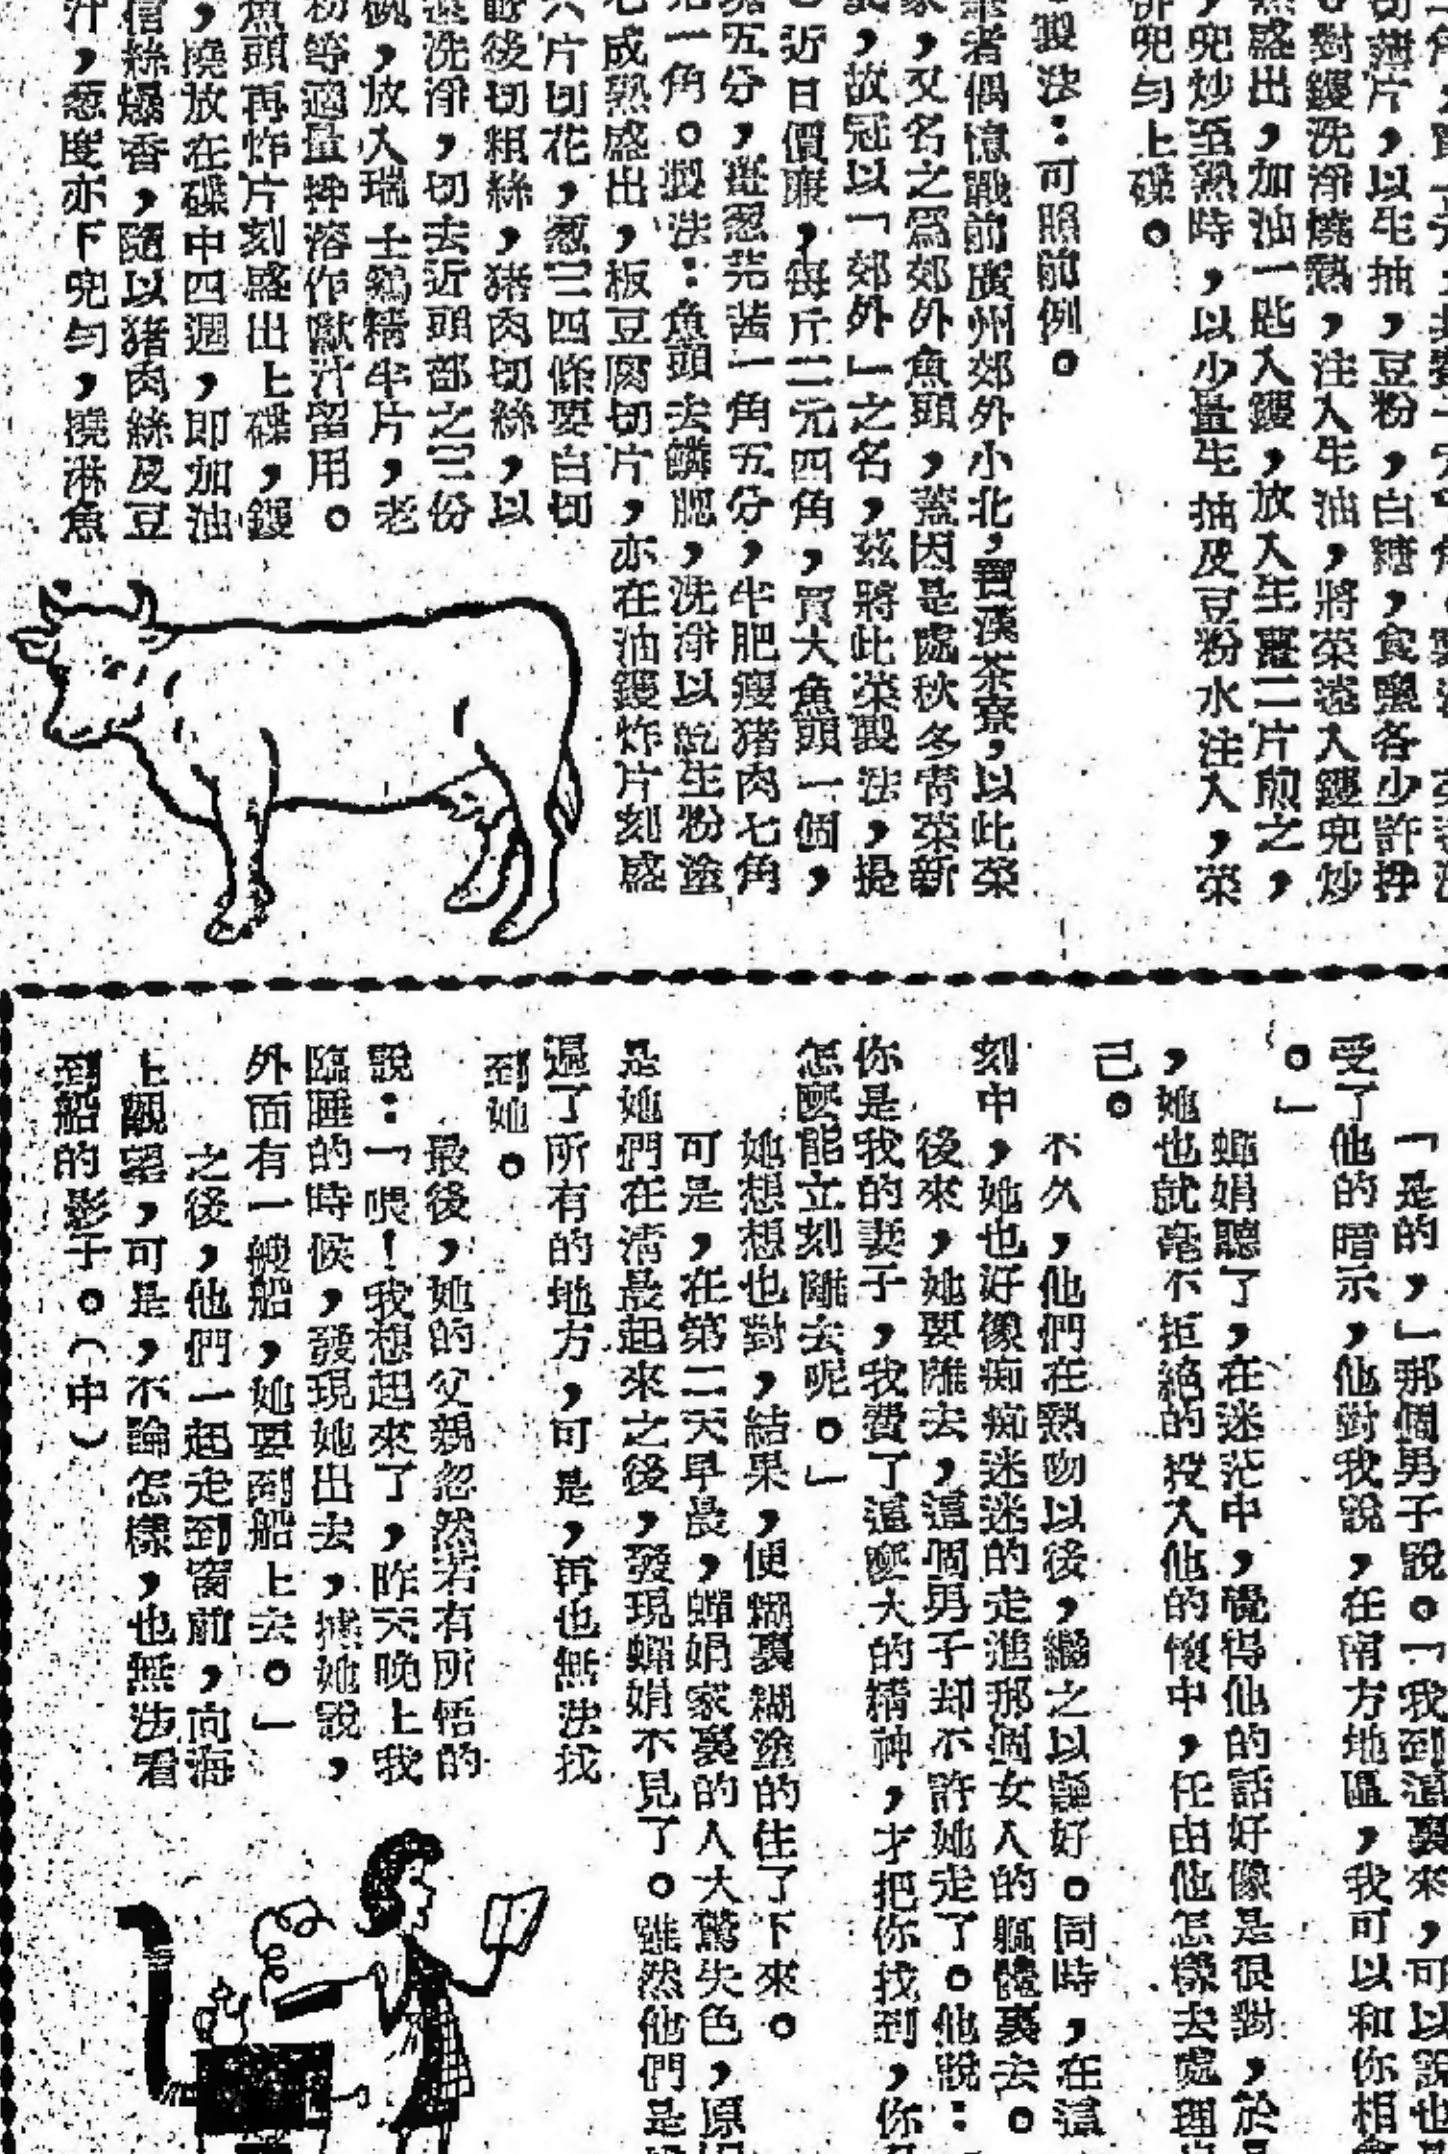 切薄片，以生抽，豆粉，白糖，食鹽各少許拌
。對鑊洗淨燒熱，注入生油，將菜遠入鑊兜炒
熟盛出，加油一匙入鑊，放入生薑二片煎之，
，兜炒至熟時，以少量生抽及豆粉水注入，菜
許兜勻上碟。
製法：可照前例。
筆者偶憶戰前廣州郊外小北，寶漢茶寮，以此菜
家，又名之為郊外魚頭，蓋因是處秋冬膏菜新
，故冠以「郊外」之名，茲將此菜製法，提
近日價廉，每斤二元四角，買大魚頭一個，
五分，薑葱芫茜一角五分，半肥瘦猪肉七角
一角。製法：魚頭去鱗腮，洗淨以乾生粉塗
成熟盛出，板豆腐切片，亦在油鑊炸片刻盛
六片切花，葱三四條要白切
後切粗絲，猪肉切絲，以
洗淨，切去近頭部之三份
碗，放入瑞士鷄精半片，老
粉等適量拌溶作獻汁留用。
魚頭再炸片刻盛出上碟，鑊
，撓放在碟中四週，即加油
信絲爆香，隨以猪肉絲及豆
汁，葱度亦下兜勻，撓淋魚
「是的，」那個男子說。「我到這裏來，可以說也
受了他的暗示，他對我說，在南方地區，我可以和你相會
。」
蟬娟聽了，在迷茫中，覺得他的話好像是很對，於
，她也就毫不拒絕的投入他的懷中，任由他怎樣去處理
己。
不久，他們在熱吻以後，繼之以歸好。同時，在這
刻中，她也好像痴痴迷迷的走進那個女人的軀體裏去。
後來，她要離去，這個男子却不許她走了。他說：
你是我的妻子，我費了這麽大的精神，才把你找到，你
怎麽能立刻離去呢。」
她想想也對，結果，便糊裏糊塗的住了下來。
可是，在第二天早晨，蟬娟家裏的人大驚失色，原
是她們在清晨起來之後，發現蟬娟不見了。雖然他們是
遍了所有的地方，可是，再也無法找
到她。
最後，她的父親忽然若有所悟的
說：「喂！我想起來了，昨天晚上我
臨睡的時候，發現她出去，據她說，
外面有一艘船，她要到船上去。」
之後，他們一起走到窗前，向海
上觀望，可是，不論怎樣，也無法看
到船的影子。（中）